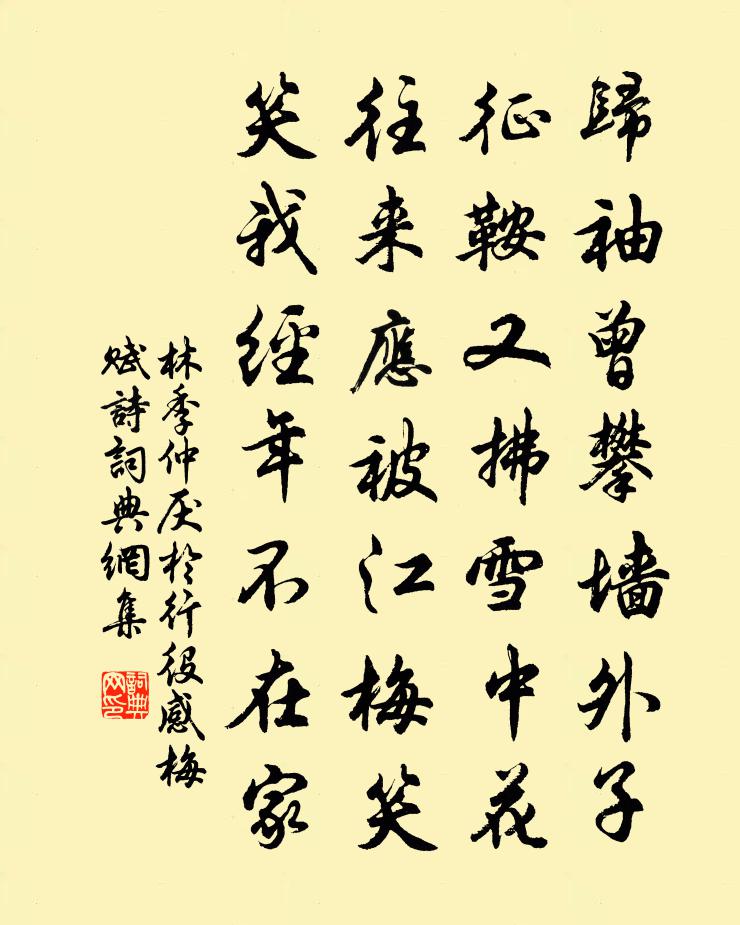 歸袖曾攀墙外子
征鞍又拂雪中花
往来應被江梅笑
笑我經年不在家
林季仲厌於行役感梅
赋詩詞典網集
詞典网印